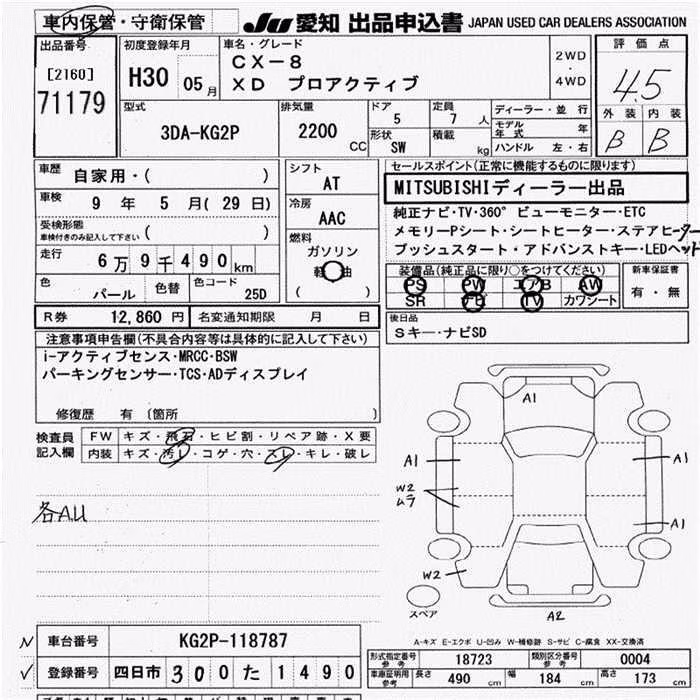 車内保管・守衛保管
JU 愛知 出品申込書 JAPAN USED CAR DEALERS ASSOCIATION
出品番号
[2160]
71179
初度登録年月
H30 05 月
車名・グレード
CX-8
XD プロアクティブ
2WD
・
4WD
評価点
4.5
外装 内装
B B
型式
3DA-KG2P
排気量
2200
CC
ドア
5
定員
7
人
形状
SW
積載
kg
ディーラー・並行
モデル年式 年
ハンドル 左・右
車歴
自家用・( )
車検
9 年 5 月(29 日)
受検形態
車検付きのみ記入して下さい ( )
走行
6万9千490km
色
パール
色替
色コード
25D
シフト
AT
冷房
AAC
燃料
ガソリン
軽油
( )
セールスポイント(正常に機能するものに限ります)
MITSUBISHIディーラー出品
純正ナビ・TV・360°ビューモニター・ETC
メモリーPシート・シートヒーター・ステアヒーター
プッシュスタート・アドバンストキー・LEDヘッド
装備品(純正品に限り○をつけてください)
PS PW エアB AW
SR ナビ TV カワシート
新車保証書
有・無
R券 12,860 円 名変通知期限 月 日
後日品
Sキー・ナビSD
注意事項申告欄(不具合内容等は具体的に記入して下さい)
i-アクティブセンス・MRCC・BSW
パーキングセンサー・TCS・ADディスプレイ
修復歴 有 〔箇所 〕
検査員
記入欄
FW キズ・飛石・ヒビ割・リペア跡・X要
内装 キズ・汚レ・コゲ・穴・スレ・キレ・破レ
各AU
A1
A1
W2
ムラ
A1
A1
W2
スペア
A2
A-キズ E-エクボ U-凹み W-補修跡 S-サビ C-腐食 XX-交換済
車台番号 KG2P-118787
登録番号 四日市 300 た 1490
形式指定番号
参考
18723
類別区分番号
参考
0004
車庫証明用
参考
長さ 490 cm 幅 184 cm 高さ 173 cm